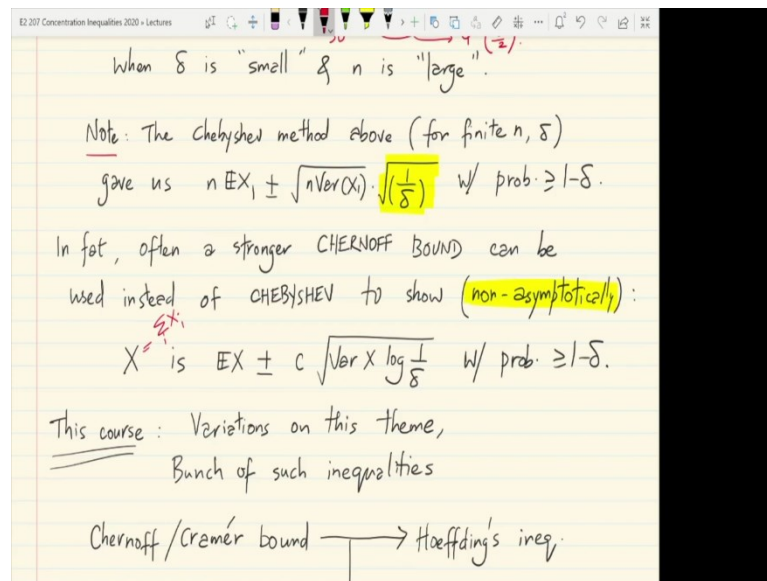 E2 207 Concentration Inequalities 2020 » Lectures
(1/2).
When δ is "small" & n is "large".
Note: The Chebyshev method above (for finite n, δ)
gave us n EX₁ ± √(n Var(X₁)) · √(1/δ) w/ prob. ≥ 1-δ.
In fat, often a stronger CHERNOFF BOUND can be
used instead of CHEBYSHEV to show (non-asymptotically):
= ΣXᵢ
X is EX ± c √(Var X log 1/δ) w/ prob. ≥ 1-δ.
This course : Variations on this theme,
Bunch of such inequalities
Chernoff/Cramér bound → Hoeffding's ineq.